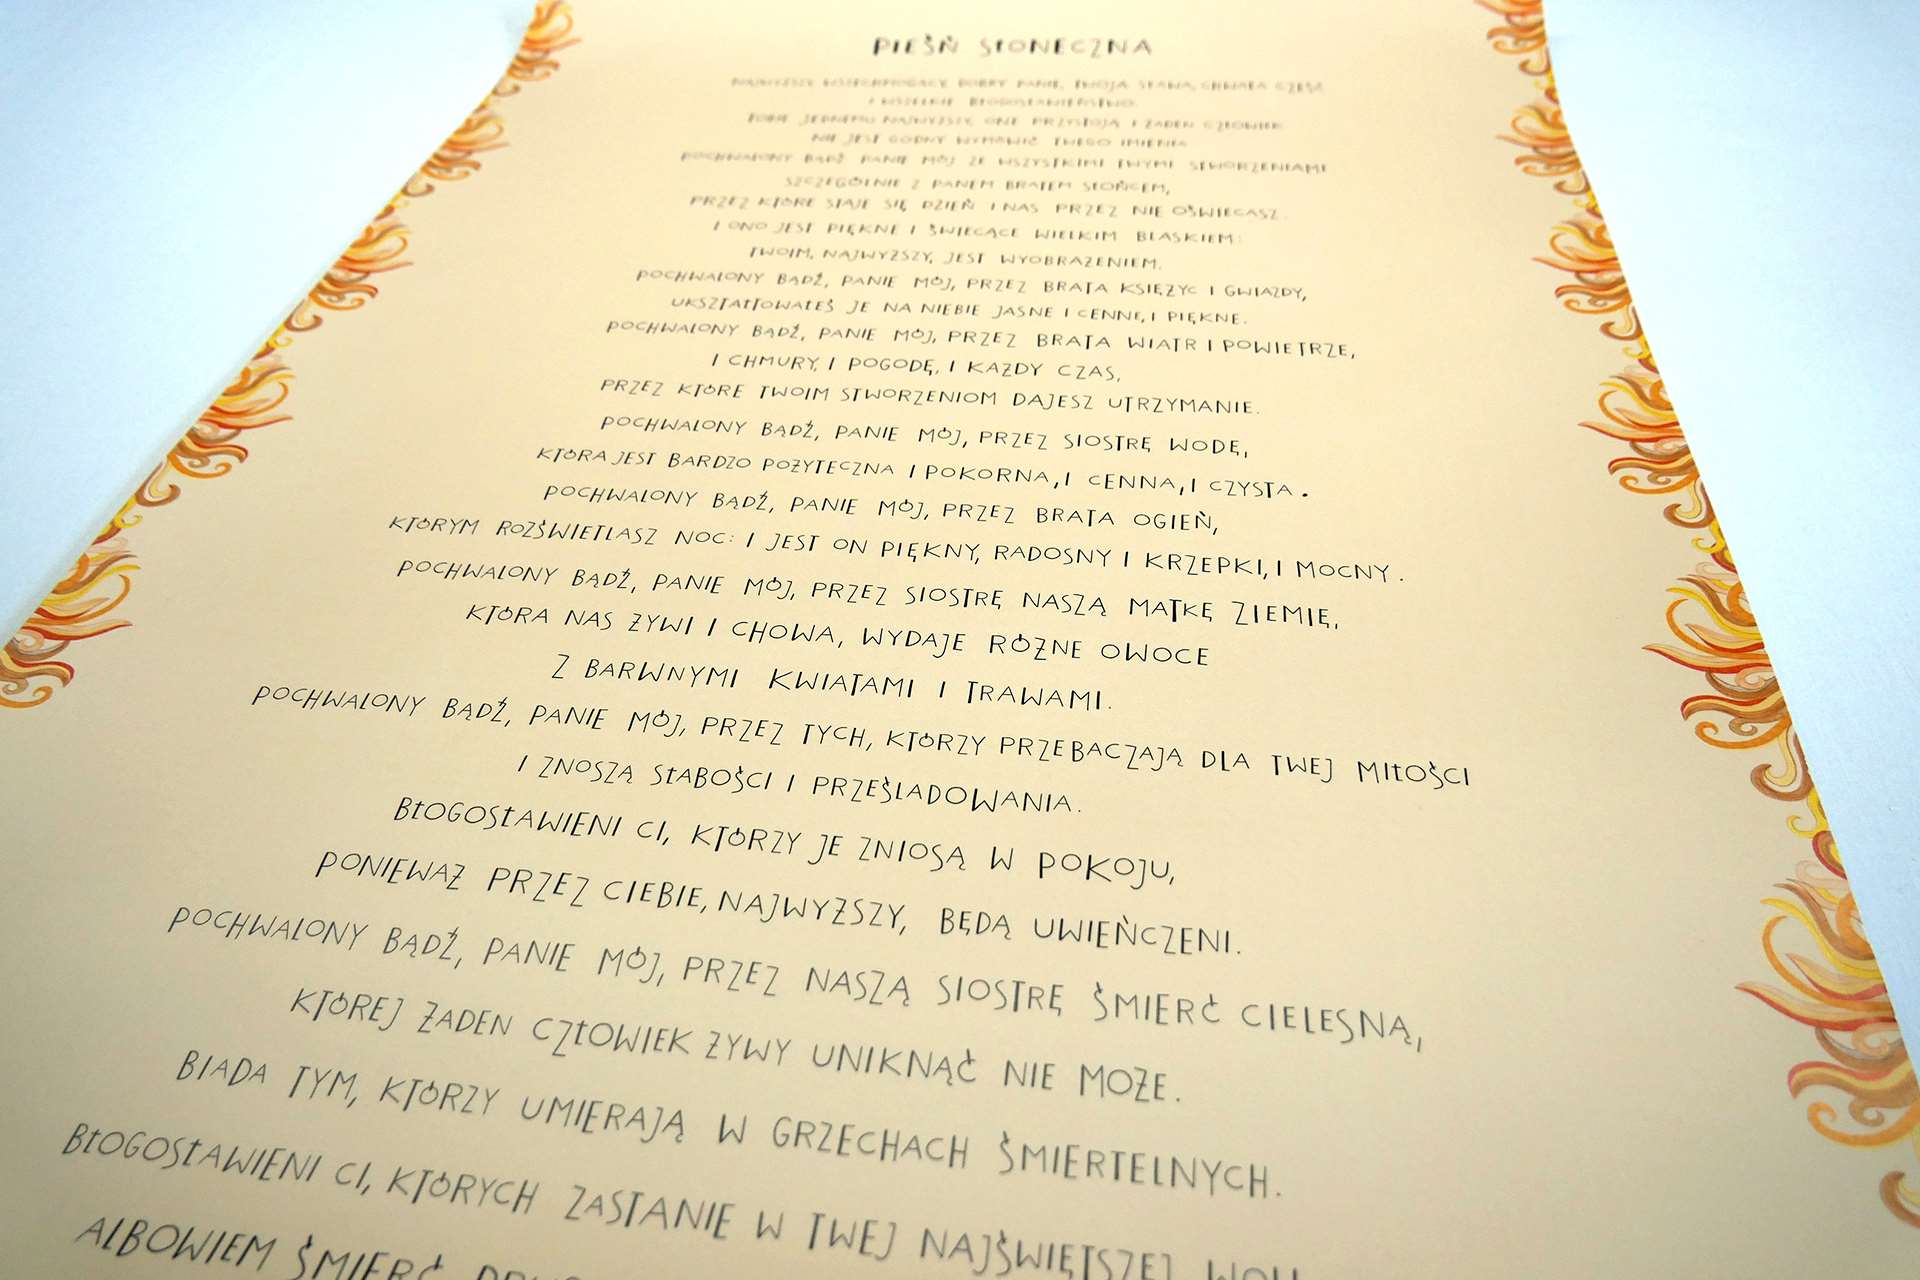 PIEŚŃ SŁONECZNA
NAJWYŻSZY WSZECHMOGĄCY DOBRY PANIE, TWOJA SŁAWA, CHWAŁA CZEŚĆ
I WSZELKIE BŁOGOSŁAWIEŃSTWO.
TOBIE JEDNEMU NAJWYŻSZY, ONE PRZYSTOJĄ I ŻADEN CZŁOWIEK
NIE JEST GODNY WYMÓWIĆ TWEGO IMIENIA
POCHWALONY BĄDŹ PANIE MÓJ ZE WSZYSTKIMI TWYMI STWORZENIAMI
SZCZEGÓLNIE Z PANEM BRATEM SŁOŃCEM,
PRZEZ KTÓRE STAJE SIĘ DZIEŃ I NAS PRZEZ NIE OŚWIECASZ.
I ONO JEST PIĘKNE I ŚWIECĄCE WIELKIM BLASKIEM:
TWOIM, NAJWYŻSZY, JEST WYOBRAŻENIEM.
POCHWALONY BĄDŹ, PANIE MÓJ, PRZEZ BRATA KSIĘŻYC I GWIAZDY,
UKSZTAŁTOWAŁEŚ JE NA NIEBIE JASNE I CENNE, I PIĘKNE.
POCHWALONY BĄDŹ, PANIE MÓJ, PRZEZ BRATA WIATR I POWIETRZE,
I CHMURY, I POGODĘ, I KAŻDY CZAS,
PRZEZ KTÓRE TWOIM STWORZENIOM DAJESZ UTRZYMANIE.
POCHWALONY BĄDŹ, PANIE MÓJ, PRZEZ SIOSTRĘ WODĘ,
KTÓRA JEST BARDZO POŻYTECZNA I POKORNA, I CENNA, I CZYSTA.
POCHWALONY BĄDŹ, PANIE MÓJ, PRZEZ BRATA OGIEŃ,
KTÓRYM ROZŚWIETLASZ NOC: I JEST ON PIĘKNY, RADOSNY I KRZEPKI, I MOCNY.
POCHWALONY BĄDŹ, PANIE MÓJ, PRZEZ SIOSTRĘ NASZĄ MATKĘ ZIEMIĘ,
KTÓRA NAS ŻYWI I CHOWA, WYDAJE RÓŻNE OWOCE
Z BARWNYMI KWIATAMI I TRAWAMI.
POCHWALONY BĄDŹ, PANIE MÓJ, PRZEZ TYCH, KTÓRZY PRZEBACZAJĄ DLA TWEJ MIŁOŚCI
I ZNOSZĄ SŁABOŚCI I PRZEŚLADOWANIA.
BŁOGOSŁAWIENI CI, KTÓRZY JE ZNIOSĄ W POKOJU,
PONIEWAŻ PRZEZ CIEBIE, NAJWYŻSZY, BĘDĄ UWIEŃCZENI.
POCHWALONY BĄDŹ, PANIE MÓJ, PRZEZ NASZĄ SIOSTRĘ ŚMIERĆ CIELESNĄ,
KTÓREJ ŻADEN CZŁOWIEK ŻYWY UNIKNĄĆ NIE MOŻE.
BIADA TYM, KTÓRZY UMIERAJĄ W GRZECHACH ŚMIERTELNYCH.
BŁOGOSŁAWIENI CI, KTÓRYCH ZASTANIE W TWEJ NAJŚWIĘTSZEJ WOLI
ALBOWIEM ŚMIERĆ